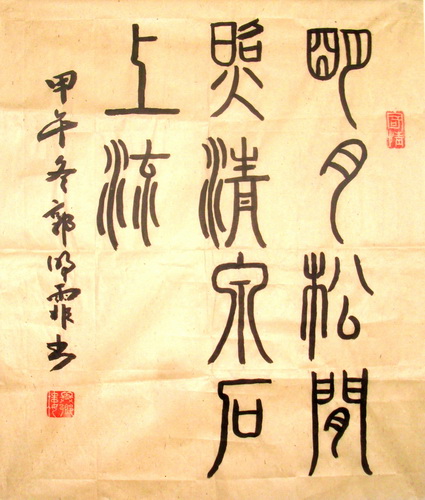 明月松間
照清泉石
上流
甲午冬郭明霏书